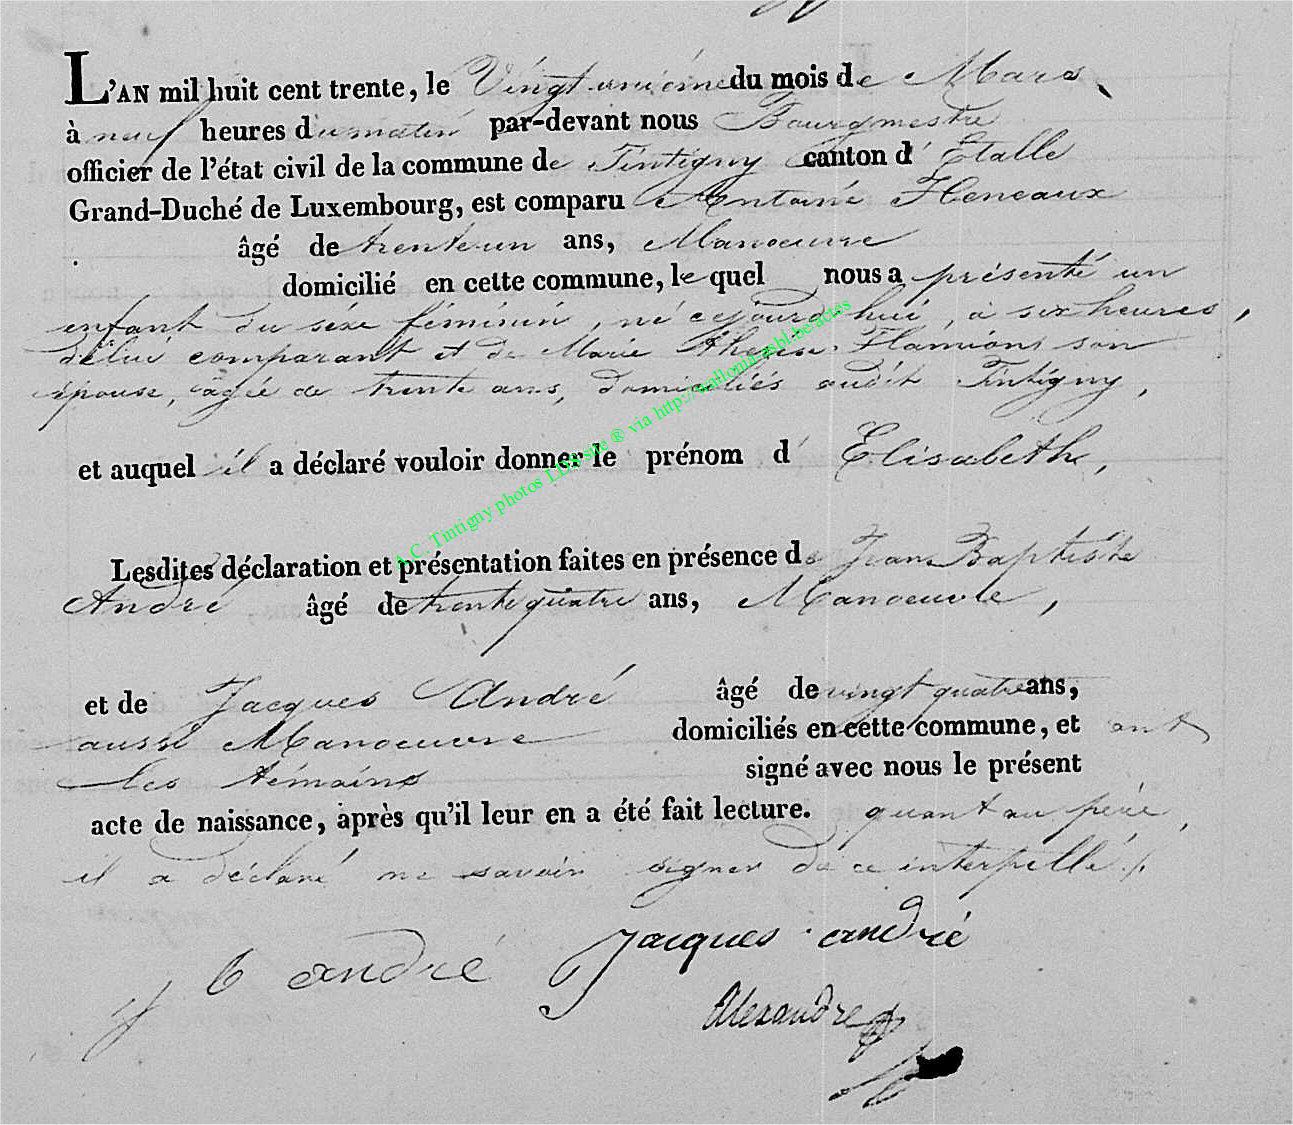 L'AN mil huit cent trente, le Vingt-unième du mois de Mars
à neuf heures du matin par-devant nous Bourgmestre
officier de l'état civil de la commune de Tintigny canton d'Etalle
Grand-Duché de Luxembourg, est comparu Antoine Heneaux
âgé de trente-un ans, Manoeuvre
domicilié en cette commune, lequel nous a présenté un
enfant du séxe féminin, né cejourd'hui, à six heures,
délui comparant et de Marie Therèse Flamion son
épouse, agée de trente ans, domiciliés audit Tintigny,
et auquel il a déclaré vouloir donner le prénom d Elisabeth,
Lesdites déclaration et présentation faites en présence de Jean Baptiste
André âgé de trente quatre ans, Manoeuvre,
et de Jacques André âgé de vingt quatre ans,
aussi Manoeuvre domiciliés en cette commune, et ont
les témoins signé avec nous le présent
acte de naissance, après qu'il leur en a été fait lecture. quant au père,
il a déclaré ne savoir signer de ce interpellé ./.
j b andré Jacques andré
Alexandre
A.C. Tintigny photos LDS site ® via http://wallonia-asbl.be/actes